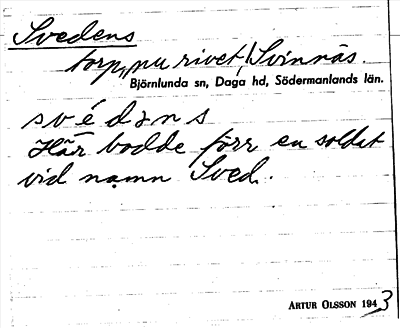 Svedens
torp, nu rivet, Svinnäs.
Björnlunda sn, Daga hd, Södermanlands län.
svédəns
Här bodde förr en soldat
vid namn Sved.
ARTUR OLSSON 1943